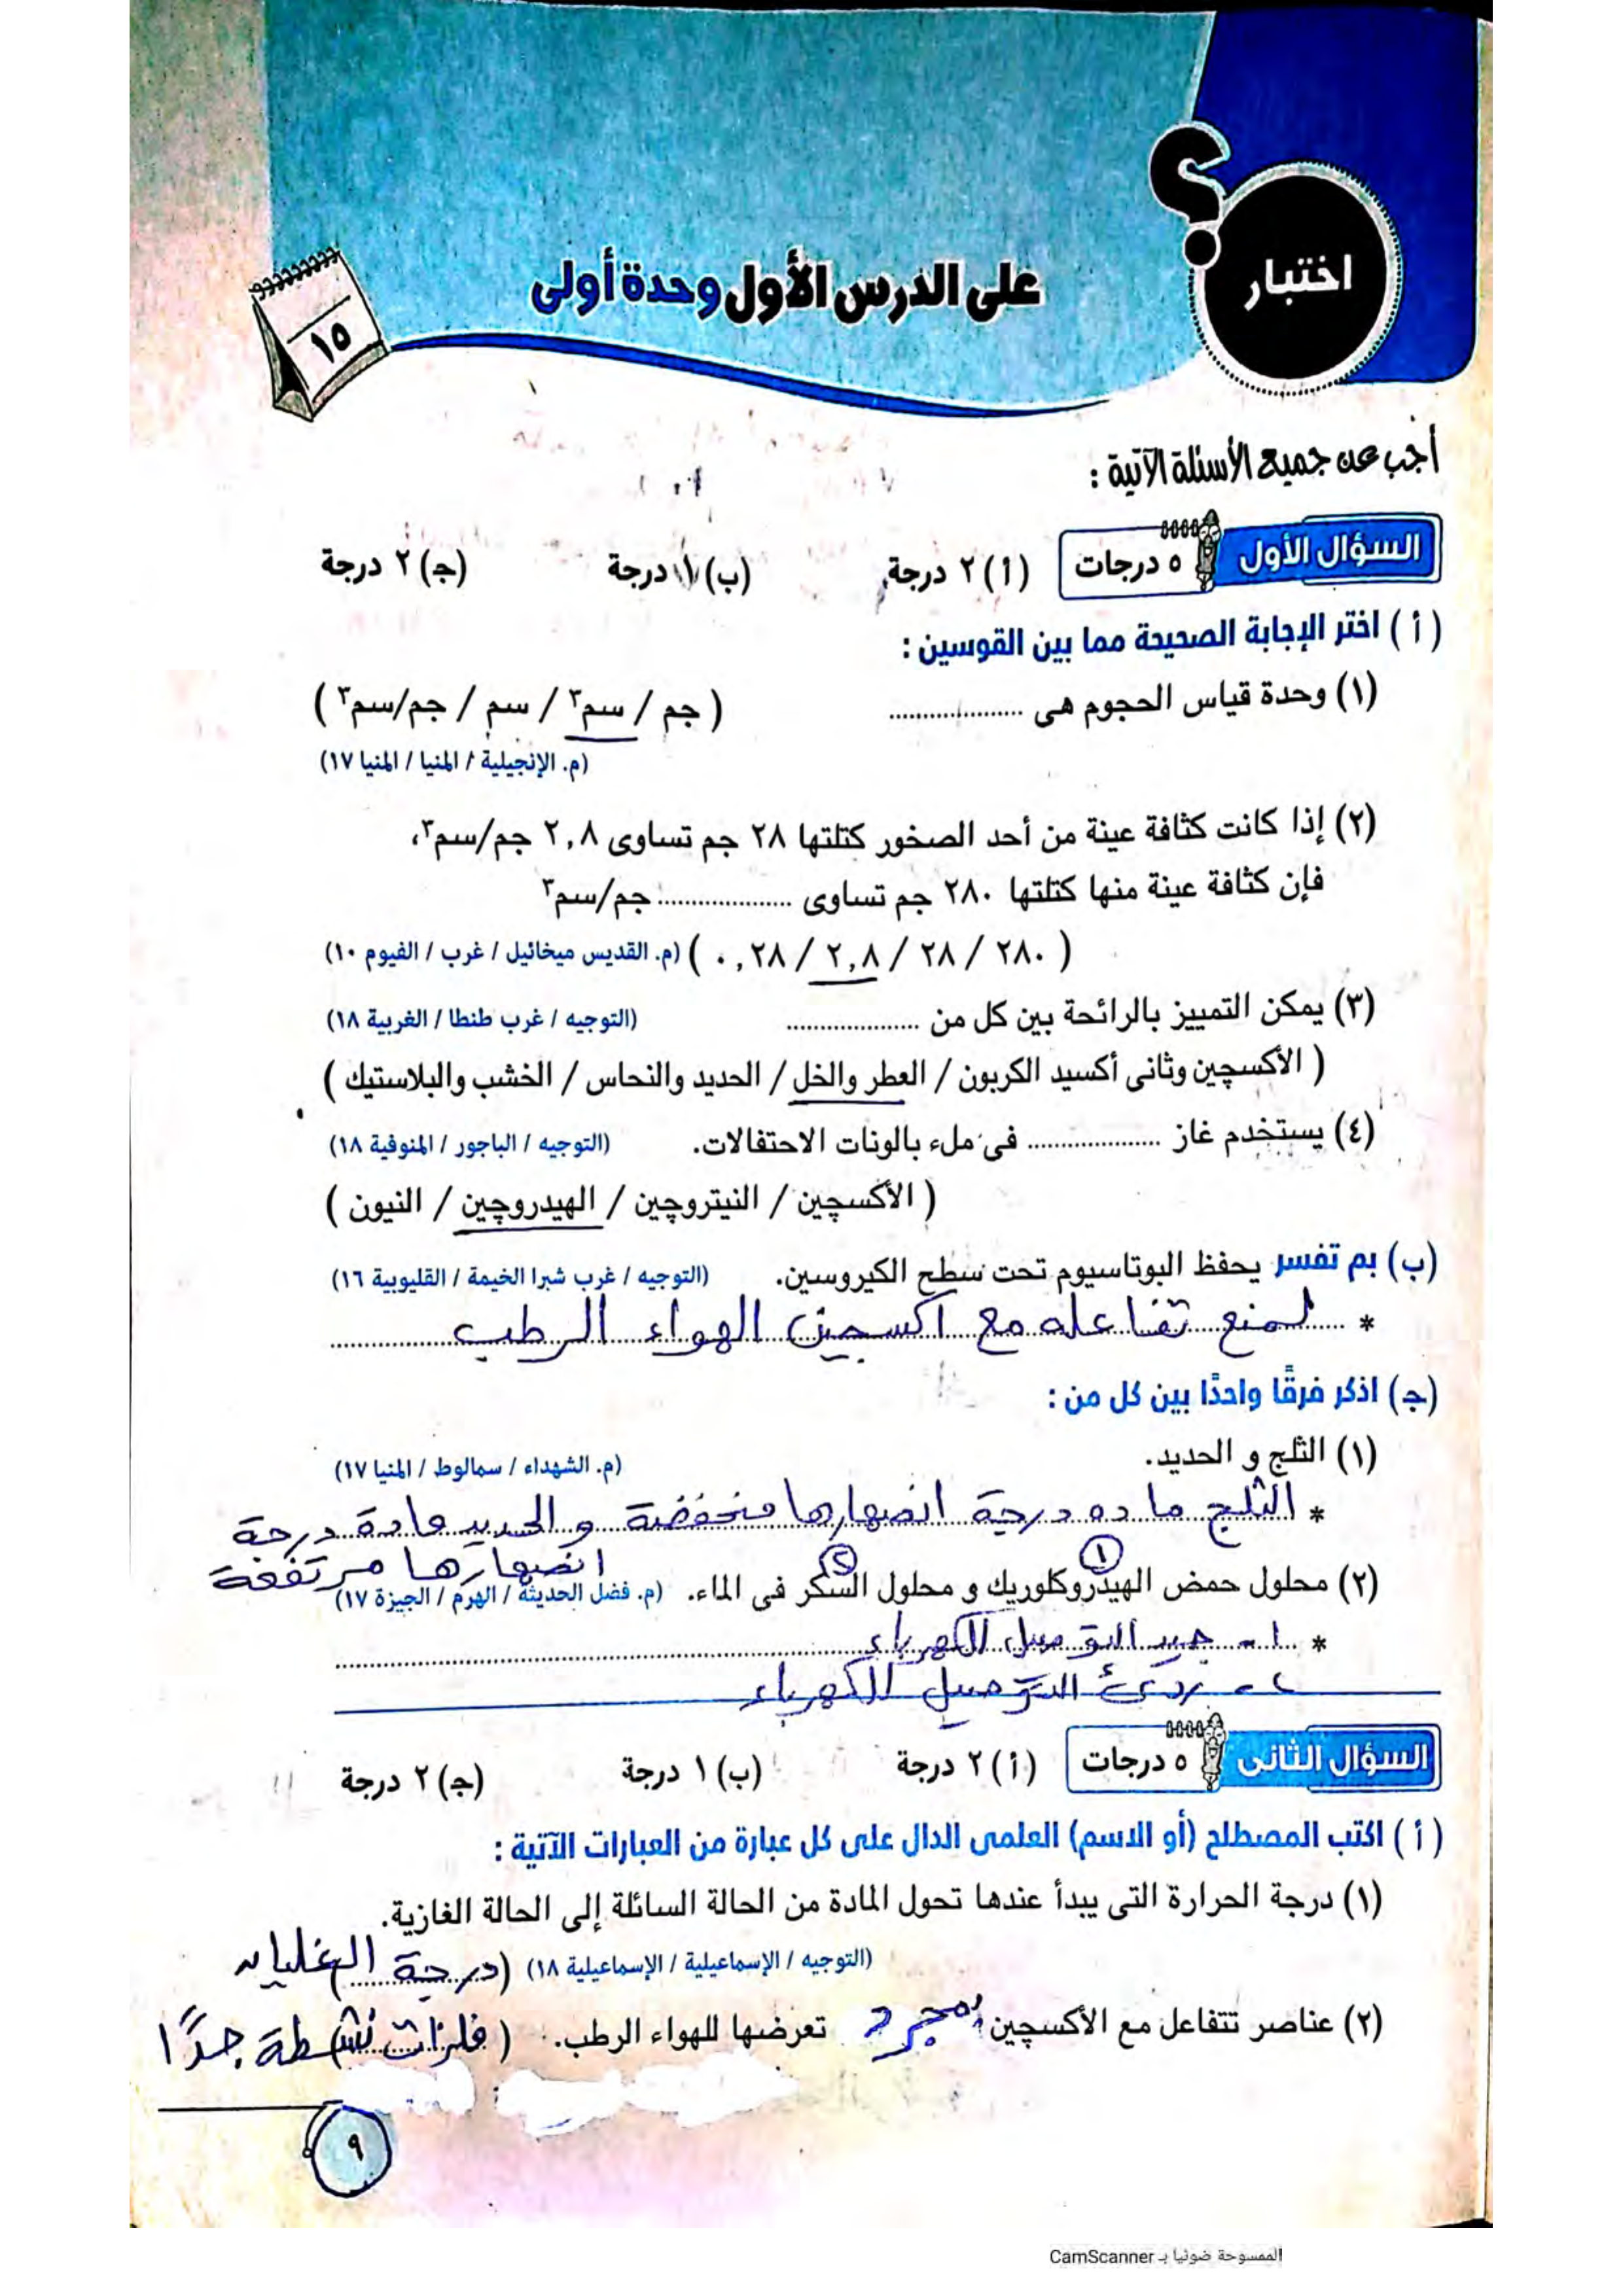 اختبار
على الدرس الأول وحدة أولى
١٥
أجب عن جميع الأسئلة الآتية :
السؤال الأول ٥ درجات (أ) ٢ درجة (ب) ١ درجة (جـ) ٢ درجة
(أ) اختر الإجابة الصحيحة مما بين القوسين :
(١) وحدة قياس الحجوم هى .................... ( جم / سم٣ / سم / جم/سم٣ )
(م. الإنجيلية / المنيا / المنيا ١٧)
(٢) إذا كانت كثافة عينة من أحد الصخور كتلتها ٢٨ جم تساوى ٢,٨ جم/سم٣،
فإن كثافة عينة منها كتلتها ٢٨٠ جم تساوى .................... جم/سم٣
( ٢٨٠ / ٢٨ / ٢,٨ / ٠,٢٨ ) (م. القديس ميخائيل / غرب / الفيوم ١٠)
(٣) يمكن التمييز بالرائحة بين كل من .................... (التوجيه / غرب طنطا / الغربية ١٨)
( الأكسچين وثانى أكسيد الكربون / العطر والخل / الحديد والنحاس / الخشب والبلاستيك )
(٤) يستخدم غاز .................... فى ملء بالونات الاحتفالات. (التوجيه / الباجور / المنوفية ١٨)
( الأكسچين / النيتروچين / الهيدروچين / النيون )
(ب) بم تفسر يحفظ البوتاسيوم تحت سطح الكيروسين. (التوجيه / غرب شبرا الخيمة / القليوبية ١٦)
* لمنع تفاعله مع اكسجين الهواء الرطب
(جـ) اذكر فرقًا واحدًا بين كل من :
(١) الثلج و الحديد. (م. الشهداء / سمالوط / المنيا ١٧)
* الثلج ماده درجة انصهارها منخفضة والحديد مادة درجة
انصهارها مرتفعة
١ ٢
(٢) محلول حمض الهيدروكلوريك و محلول السكر فى الماء. (م. فضل الحديثة / الهرم / الجيزة ١٧)
* ١- جيد التوصيل للكهرباء
٢- ردئ التوصيل للكهرباء
السؤال الثانى ٥ درجات (أ) ٢ درجة (ب) ١ درجة (جـ) ٢ درجة
(أ) اكتب المصطلح (أو الاسم) العلمى الدال على كل عبارة من العبارات الآتية :
(١) درجة الحرارة التى يبدأ عندها تحول المادة من الحالة السائلة إلى الحالة الغازية.
(التوجيه / الإسماعيلية / الإسماعيلية ١٨) (درجة الغليان)
(٢) عناصر تتفاعل مع الأكسچين بمجرد تعرضها للهواء الرطب. (فلزات نشطة جدًا)
٩
الممسوحة ضوئيا بـ CamScanner